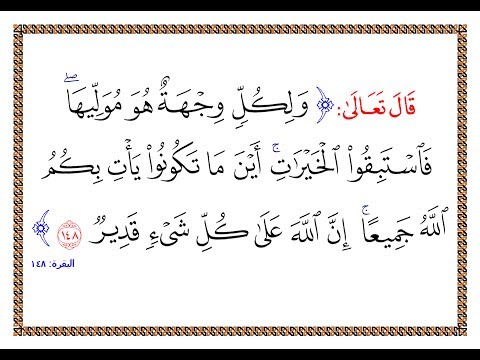 قَالَ تَعَالَىٰ: ﴿ وَلِكُلٍّ وِجْهَةٌ هُوَ مُوَلِّيهَا ۖ
فَٱسْتَبِقُوا۟ ٱلْخَيْرَٰتِ ۚ أَيْنَ مَا تَكُونُوا۟ يَأْتِ بِكُمُ
ٱللَّهُ جَمِيعًا ۚ إِنَّ ٱللَّهَ عَلَىٰ كُلِّ شَىْءٍۢ قَدِيرٌۭ ١٤٨ ﴾
البقرة: ١٤٨